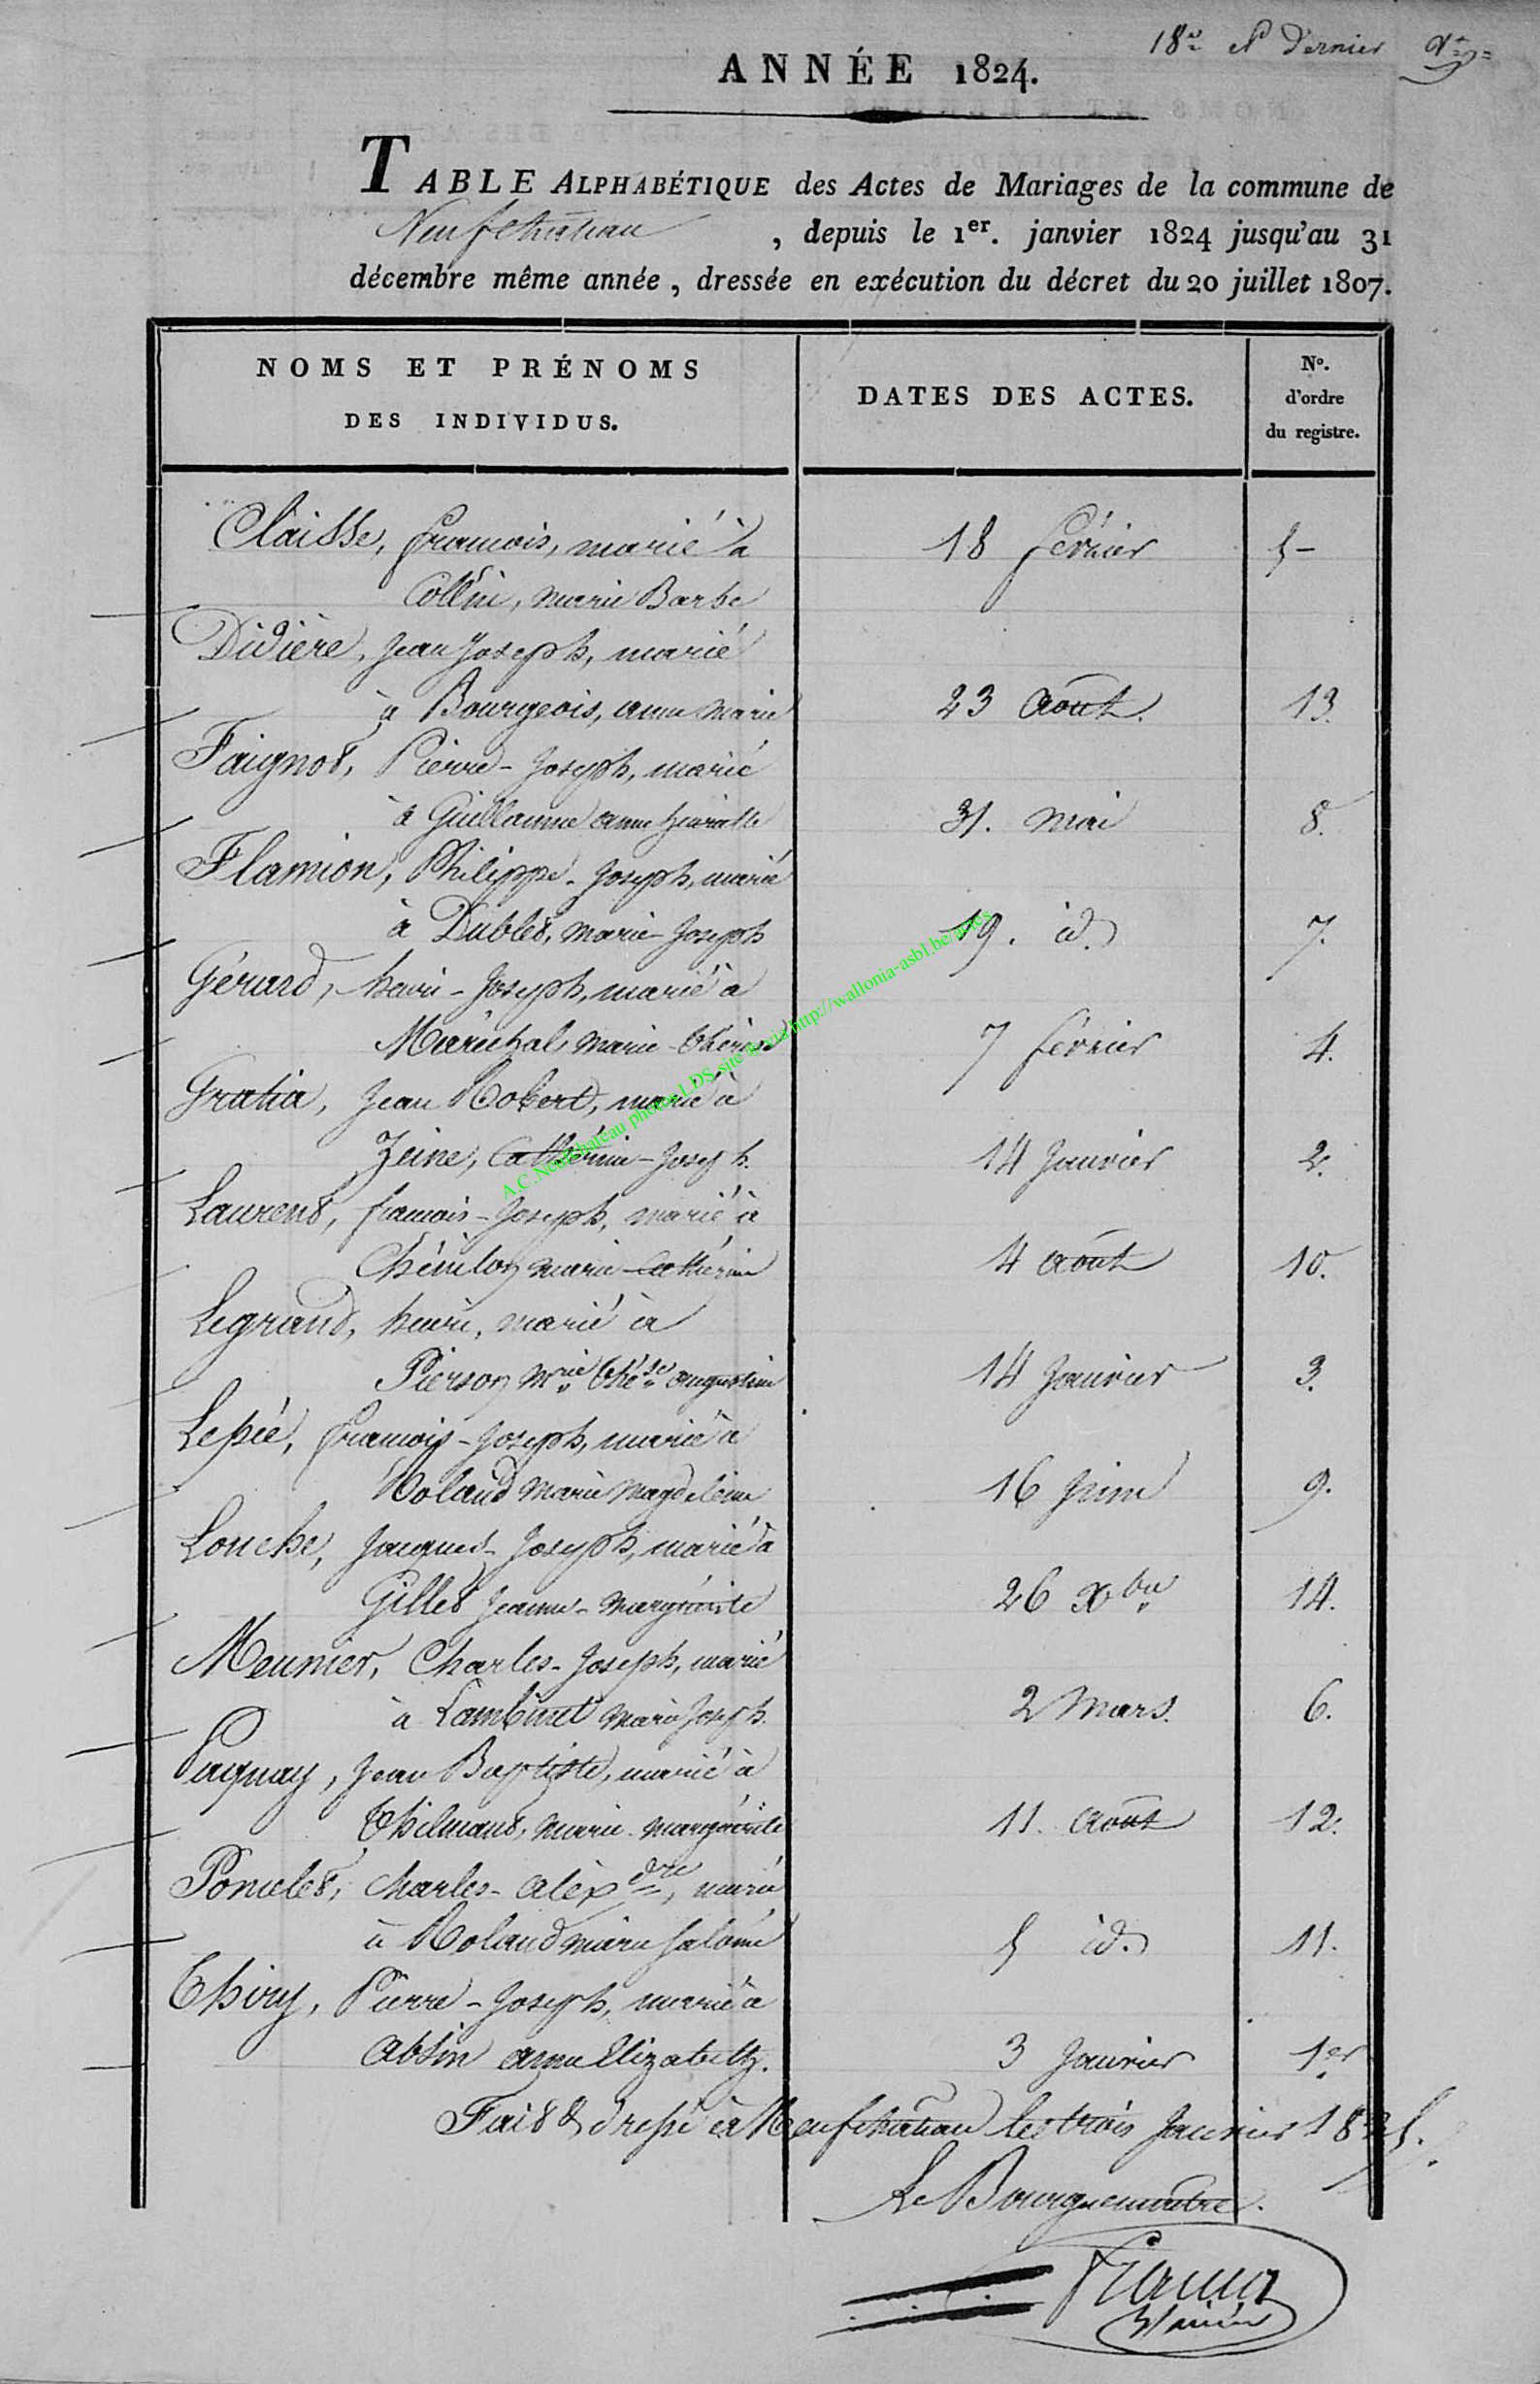 18e et Dernier
ANNÉE 1824.
TABLE ALPHABÉTIQUE des Actes de Mariages de la commune de
Neufchateau, depuis le 1er. janvier 1824 jusqu'au 31
décembre même année, dressée en exécution du décret du 20 juillet 1807.
NOMS ET PRÉNOMS
DES INDIVIDUS.
DATES DES ACTES.
No.
d'ordre
du registre.
Claisse, francois, marié à
Collin, marie Barbe 18 février 5-
Didière, Jean Joseph, marié
à Bourgeois, anne marie 23 Août. 13.
Faignot, Pierre-Joseph, marié
à Guillaume anne henriette 31. Mai 8.
Flamion, Philippe-Joseph, marié
à Dublet, marie-Joseph 19. id. 7.
Gérard, henri-Joseph, marié à
Maréchal, marie-thérèse 7 février 4.
Gratia, Jean Robert, marié à
Zeine, Cathérine-Joseph. 14 Janvier 2.
Laurent, francois-Joseph, marié à
marie-Cathérine 4 Août 10.
Legrand, henri, marié à
Pierson, Mrie Thése augustine 14 Janvier 3.
Lepée, francois-Joseph, marié à
Roland Marie Magdeleine 16 Juin 9.
Louche, Jacques-Joseph, marié à
Gillet Jeanne-Marguerite 26 Xbre 14.
Meunier, Charles-Joseph, marié
à Lambinet Marie Joseph. 2 Mars. 6.
Pagnay, Jean Baptiste, marié à
Thilmant, Marie-Marguerite 11. Août 12.
Poncelet, Charles-Alexdre, marié
à Roland marie Salomé 5 id. 11.
Thiry, Pierre-Joseph, marié à
Absin anne Elizabeth. 3 Janvier 1er
Fait & dressé à Neufchateau le trois Janvier 1825.
Le Bourguemaitre.
A.C. Neufchateau photos LDS site via http://wallonia-asbl.be/actes